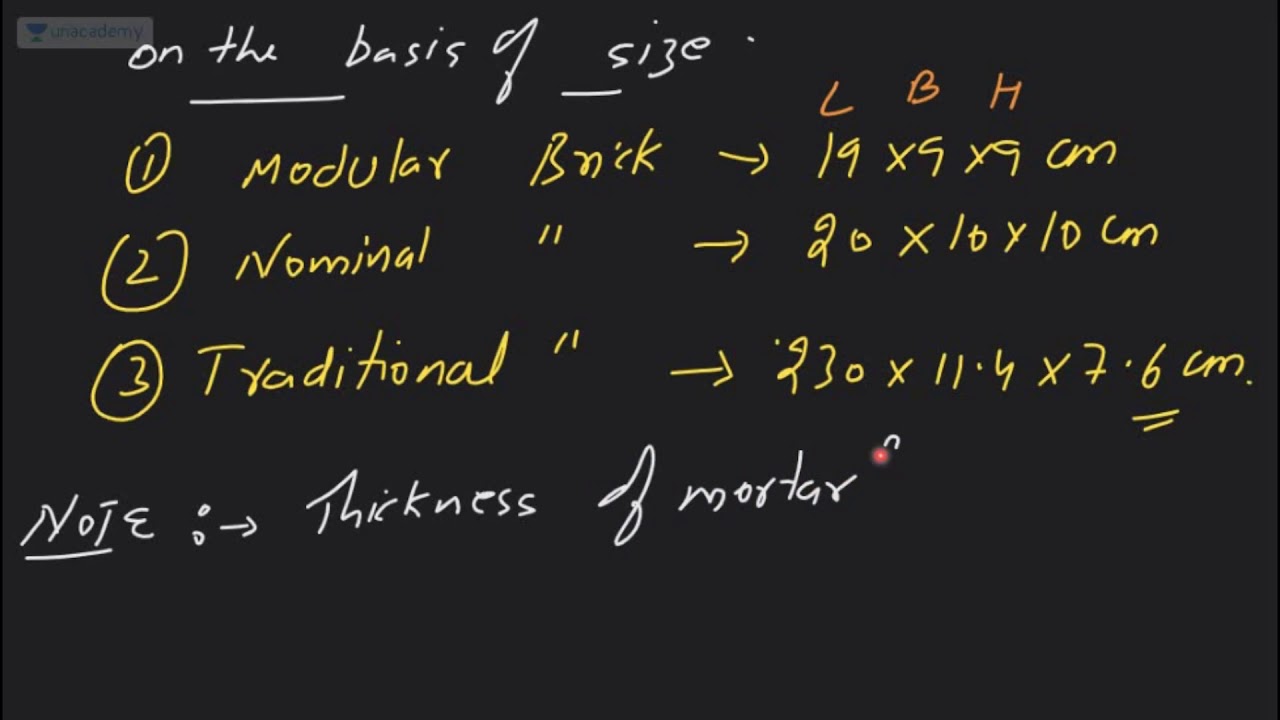 unacademy
on the basis of size.
L B H
① Modular Brick → 19 x 9 x 9 cm
② Nominal " → 20 x 10 x 10 cm
③ Traditional " → 230 x 11.4 x 7.6 cm.
NOTE :→ Thickness of mortar